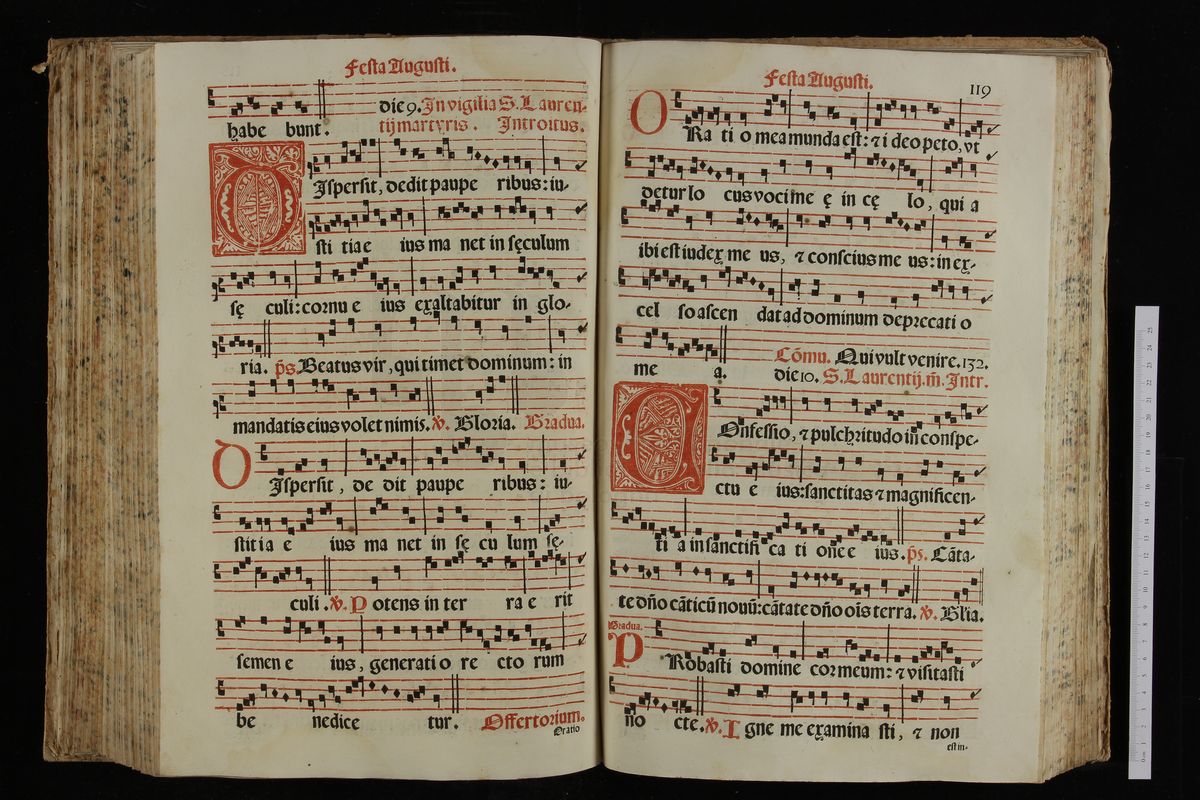 Festa Augusti.
habe bunt. die 9. In vigilia S. Lauren-
tij martyris. Introitus.
DIspersit, dedit paupe ribus: iu-
sti tia e ius ma net in sęculum
sę culi: cornu e ius exaltabitur in glo-
ria. p̄s. Beatus vir, qui timet dominum: in
mandatis eius volet nimis. ℣. Gloria. Gradua.
DIspersit, de dit paupe ribus: iu-
stitia e ius ma net in sę cu lum sę-
culi. ℣. P otens in ter ra e rit
semen e ius, generati o re cto rum
be nedice tur. Offertorium.
Oratio
Festa Augusti. 119
ORa ti o mea munda est: ⁊ i deo peto, vt
detur lo cus voci me ę in cę lo, qui a
ibi est iudex me us, ⁊ conscius me us: in ex-
cel so ascen dat ad dominum deprecati o
me a. Cōmu. Qui vult venire. 132.
die 10. S. Laurentij. m̄. Intr.
COnfessio, ⁊ pulchritudo in conspe-
ctu e ius: sanctitas ⁊ magnificen-
ti a in sanctifi ca ti one e ius. p̄s. Cāta-
te dño cāticū nouū: cātate dño ois terra. ℣. Glia.
Gradua.
PRobasti domine cor meum: ⁊ visitasti
no cte. ℣. I gne me examina sti, ⁊ non
est in-
0 cm 1 2 3 4 5 6 7 8 9 10 11 12 13 14 15 16 17 18 19 20 21 22 23 24 25